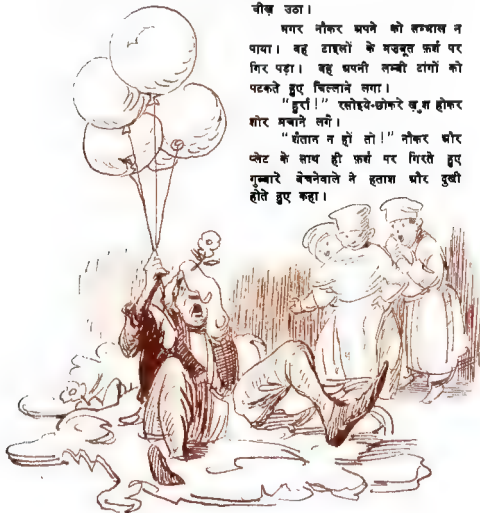 चीख़ उठा।
मगर नौकर अपने को सम्भाल न
पाया। वह टाइलों के मज़बूत फ़र्श पर
गिर पड़ा। वह अपनी लम्बी टांगों को
पटकते हुए चिल्लाने लगा।
"हुर्रा!" रसोइये-छोकरे ख़ुश होकर
शोर मचाने लगे।
"शैतान न हों तो!" नौकर और
प्लेट के साथ ही फ़र्श पर गिरते हुए
गुब्बारे बेचनेवाले ने हताश और दुखी
होते हुए कहा।